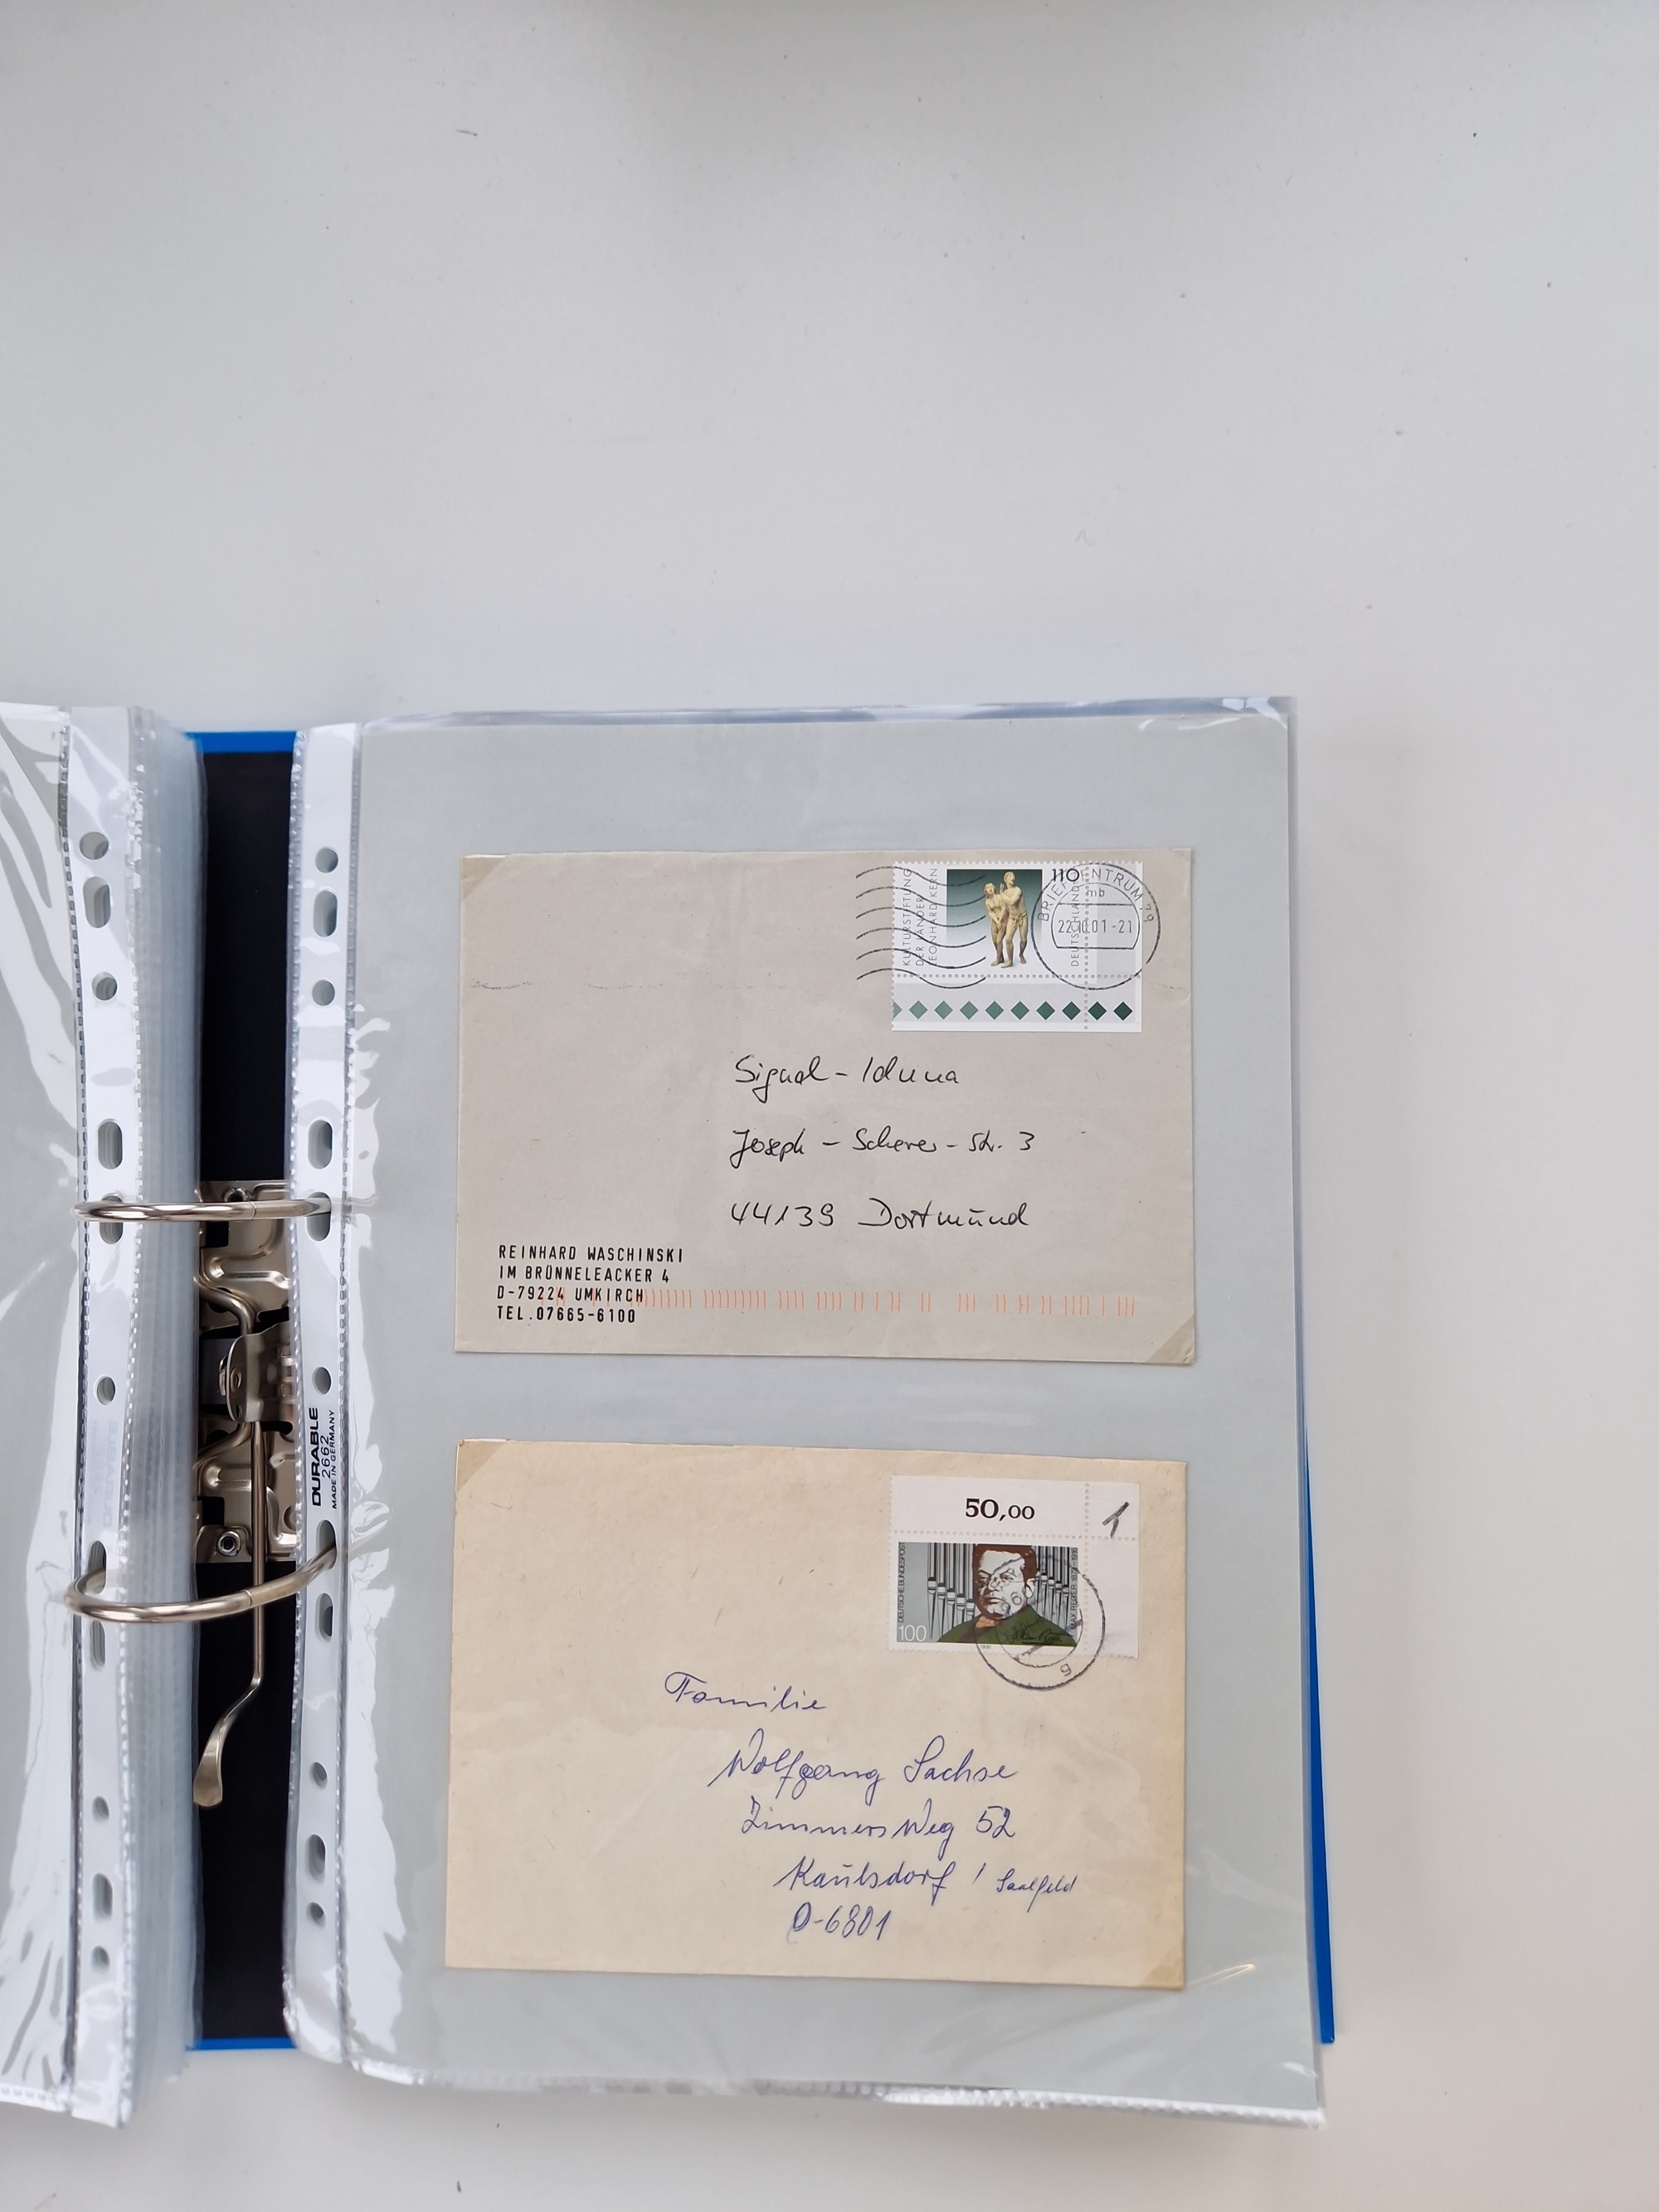 KULTURSTIFTUNG
DER LÄNDER
LEONHARD KERN
110
DEUTSCHLAND
BRIEFZENTRUM 79
mb
22.10.01-21
Signal-Iduna
Joseph-Scherer-Str. 3
44139 Dortmund
REINHARD WASCHINSKI
IM BRÜNNELEACKER 4
D-79224 UMKIRCH
TEL.07665-6100
DURABLE
2662
MADE IN GERMANY
50,00
1
DEUTSCHE BUNDESPOST
100
MAX REGER
g
Familie
Wolfgang Sachse
Zimmers Weg 52
Kaulsdorf / Saalfeld
O-6801